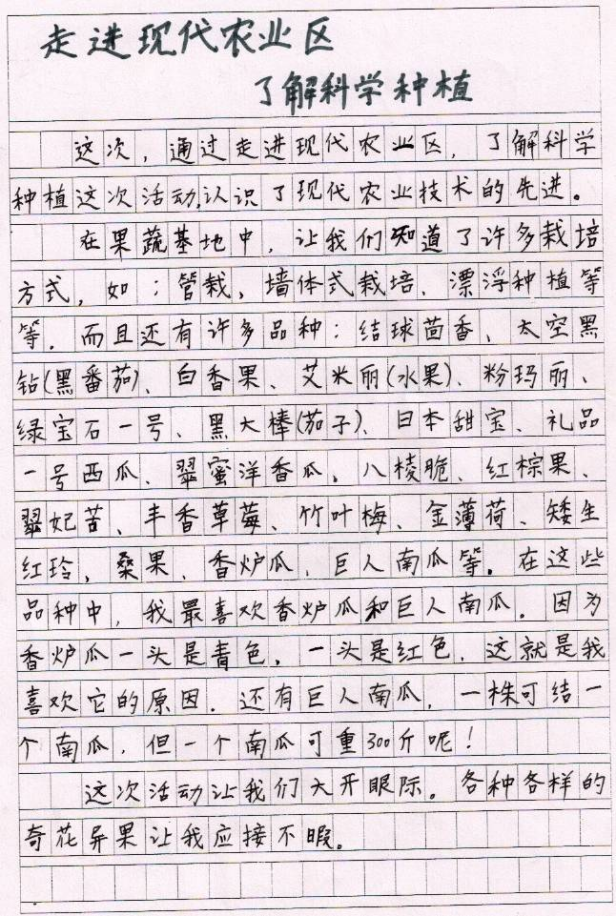 走进现代农业区
了解科学种植
这次，通过走进现代农业区，了解科学
种植这次活动,认识了现代农业技术的先进。
在果蔬基地中，让我们知道了许多栽培
方式，如：管栽，墙体式栽培、漂浮种植等
等．而且还有许多品种：结球茴香、太空黑
钻(黑番茄)、白香果、艾米丽(水果)、粉玛丽、
绿宝石一号、黑大棒(茄子)、日本甜宝、礼品
一号西瓜、翠蜜洋香瓜、八棱脆、红棕果、
翠妃苦、丰香草莓、竹叶梅、金薄荷、矮生
红玲，桑果、香炉瓜、巨人南瓜等。在这些
品种中，我最喜欢香炉瓜和巨人南瓜．因为
香炉瓜一头是青色，一头是红色，这就是我
喜欢它的原因．还有巨人南瓜，一株可结一
个南瓜，但一个南瓜可重300斤呢！
这次活动让我们大开眼际。各种各样的
奇花异果让我应接不暇。